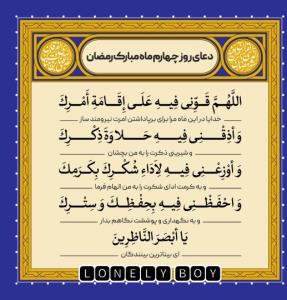 دعای روز چهارم ماه مبارک رمضان
اَللَّهُمَّ قَوِّنِي فِيهِ عَلَى إِقَامَةِ أَمْرِكَ
خدایا در این ماه مرا برای برپاداشتن امرت نیرومند ساز
وَ أَذِقْنِي فِيهِ حَلاوَةَ ذِكْرِكَ
و شیرینی ذکرت را به من بچشان
وَ أَوْزِعْنِي فِيهِ لِأَدَاءِ شُكْرِكَ بِكَرَمِكَ
و به کرمت ادای شکرت را به من الهام فرما
وَ احْفَظْنِي فِيهِ بِحِفْظِكَ وَ سِتْرِكَ
و به نگهداری و پوششت نگاهم بدار
يَا أَبْصَرَ النَّاظِرِينَ
ای بیناترین بینندگان
LONELY BOY